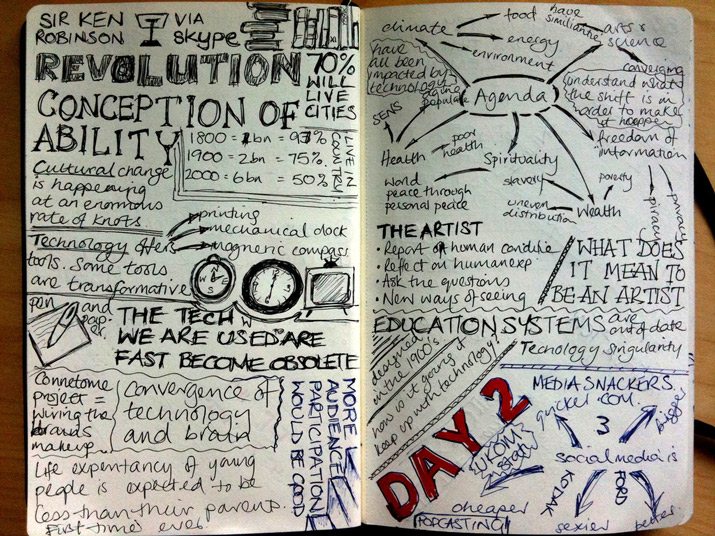 SIR KEN ROBINSON VIA Skype
REVOLUTION
70% WILL LIVE CITIES
CONCEPTION OF ABILITY
1800 = 1bn = 97%
1900 = 2bn = 75%
2000 = 6bn = 50%
LIVE IN COUNTRY
Cultural change
is happening
at an enormous
rate of knots
Technology offers
tools. Some tools
are transformative
printing
mechanical clock
magnetic compass
pen and paper
THE TECH
WE ARE USED ARE
FAST BECOME OBSOLETE
Connetome
project =
wiring the
brains
makeup
Convergence of
technology
and brain
MORE
AUDIENCE
PARTICIPATION
WOULD BE GOOD
Life expentancy of young
people is expected to be
less than their parents.
First time ever
climate
food
energy
environment
have
arts &
science
have
all been
impacted by
technology
Agenda
converging
understand what
the shift is in
order to make
it happen
SENS
Health
poor
health
Spirituality
freedom of
information
piracy
privacy
World
peace through
personal peace
slavery
uneven
distribution
poverty
Wealth
THE ARTIST
• Report on human condition
• Reflect on human exp.
• Ask the questions
• New ways of seeing
WHAT DOES
IT MEAN TO
BE AN ARTIST
EDUCATION SYSTEMS are
out of date
designed
in the 1900's
how is it going to
keep up with technology?
Tecnology singularity
DAY 2
UKOM
MEDIA SNACKERS
.COM.
quicker
3
bigger
social media is
KODAK
FORD
cheaper
sexier
better
PODCASTING